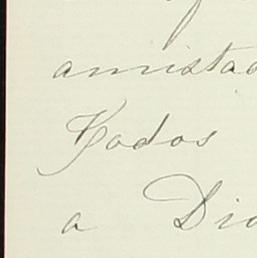 amistad
Todos
a Dio